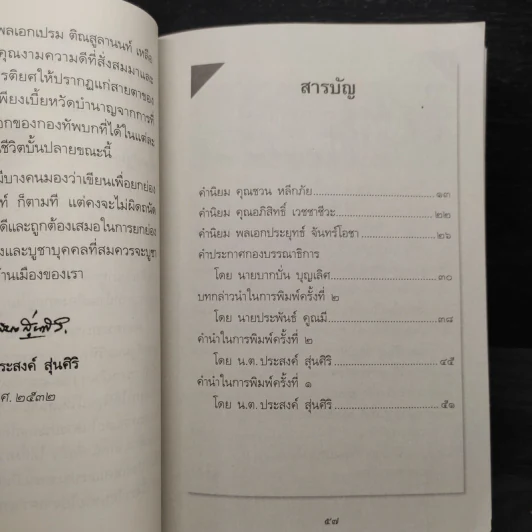 พลเอกเปรม ติณสูลานนท์ เหลือ
คุณงามความดีที่สั่งสมมาและ
รติยศให้ปรากฏแก่สายตาของ
พียงเบี้ยหวัดบำนาญจากการที่
อกของกองทัพบกที่ได้ในแต่ละ
ชีวิตบั้นปลายขณะนี้
มีบางคนมองว่าเขียนเพื่อยกย่อง
ท์ ก็ตามที แต่คงจะไม่ผิดถนัด
ดีและถูกต้องเสมอในการยกย่อง
งและบูชาบุคคลที่สมควรจะบูชา
้านเมืองของเรา
ระสงค์ สุ่นศิริ
ศ. ๒๕๓๒
สารบัญ
คำนิยม คุณชวน หลีกภัย ๑๓
คำนิยม คุณอภิสิทธิ์ เวชชาชีวะ ๒๒
คำนิยม พลเอกประยุทธ์ จันทร์โอชา ๒๖
คำประกาศกองบรรณาธิการ
โดย นายบากบั่น บุญเลิศ ๓๐
บทกล่าวนำในการพิมพ์ครั้งที่ ๒
โดย นายประพันธ์ คูณมี ๓๘
คำนำในการพิมพ์ครั้งที่ ๒
โดย น.ต.ประสงค์ สุ่นศิริ ๔๕
คำนำในการพิมพ์ครั้งที่ ๑
โดย น.ต.ประสงค์ สุ่นศิริ ๕๑
๕๗